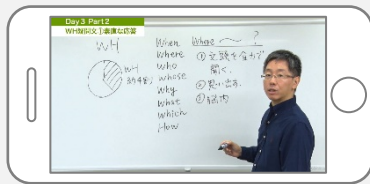 Day 3 Part 2
WH疑問文①素直な応答
WH
WH
3カ4割
When
Where
Who
Whose
Why
What
Which
How
Where 〜 ?
① 文頭を全力で
聞く。
②
③